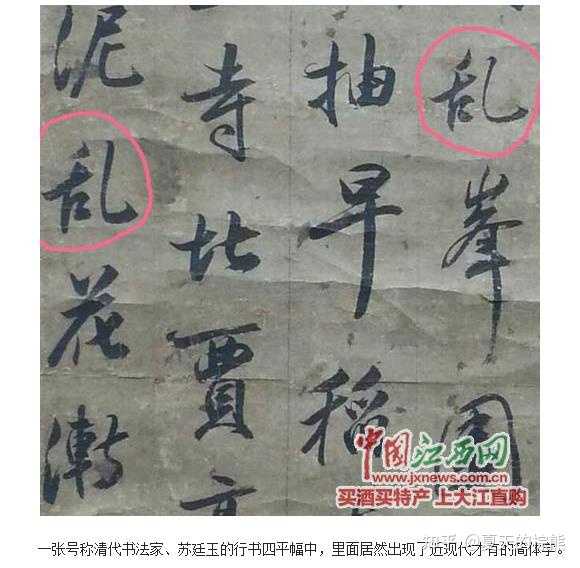 乱峯圍
抽早稻
寺北賈
泥乱花漸
中国江西网
www.jxnews.com.cn
买酒买特产 上大江直购
知乎 @夏天的棕熊
一张号称清代书法家、苏廷玉的行书四平幅中，里面居然出现了近现代才有的简体字。